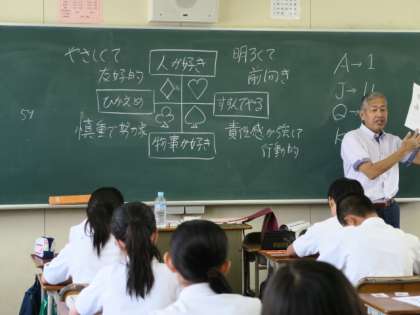 やさしくて
友好的
人が好き
明るくて
前向き
ひかえめ
すすんでやる
慎重で努力家
責任感が強くて
行動的
物事が好き
A→1
J→11
Q→
K